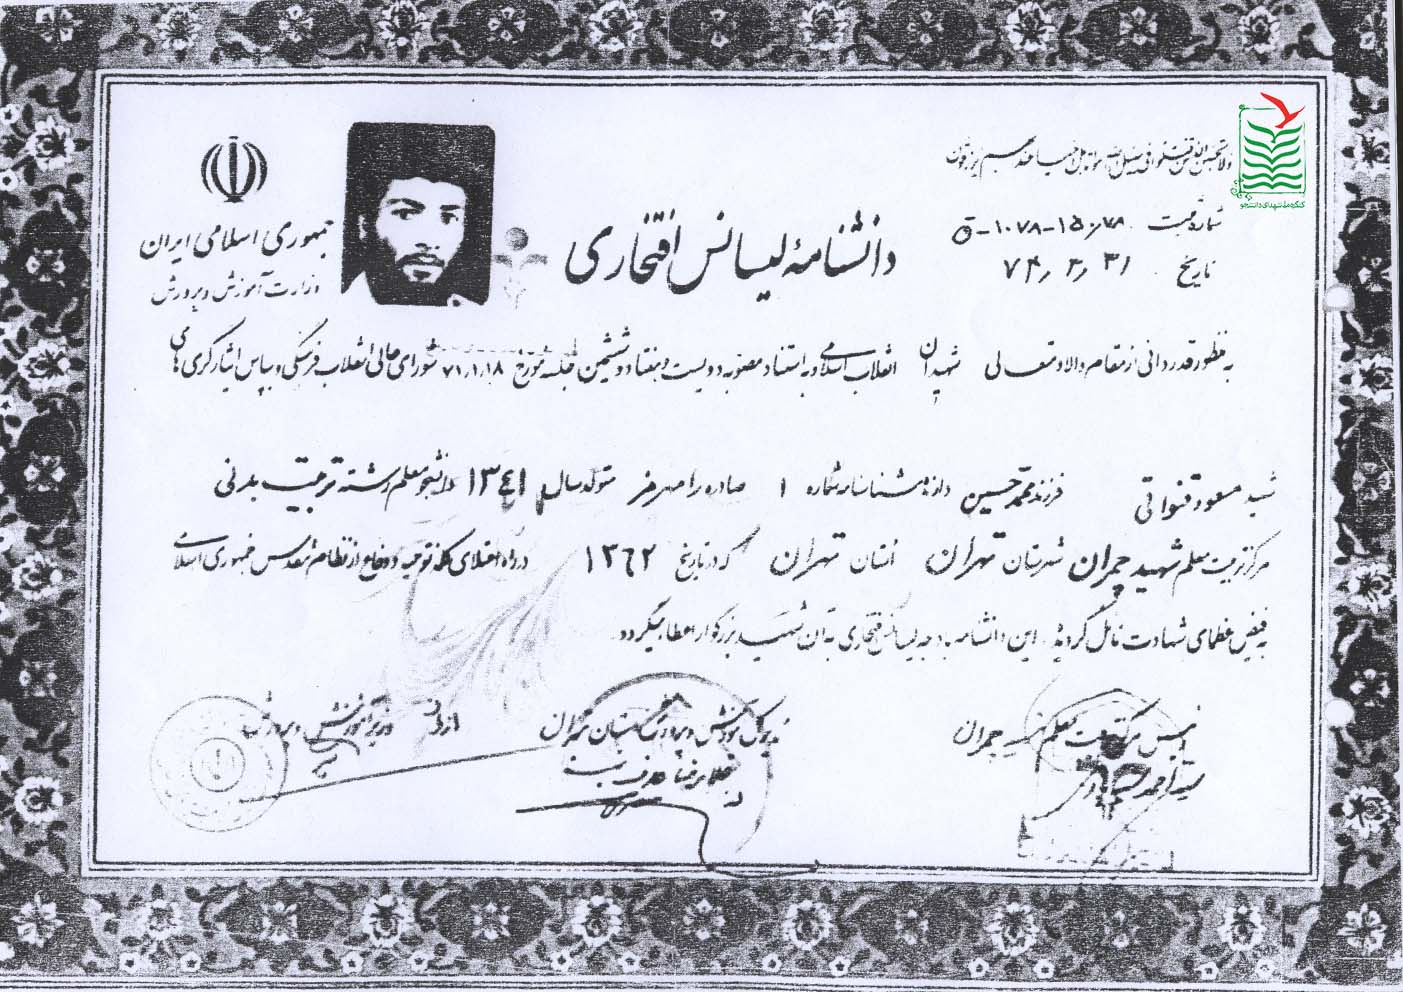 ولا تحسبن الذین قتلوا فی سبیل الله امواتا بل احیاء عند ربهم یرزقون
کنگره ملی شهدای دانشجو
شماره ثبت ۱۰۷۸-۱۵۰/۷۸-ق
تاریخ ۷۴/۳/۳۱
جمهوری اسلامی ایران
وزارت آموزش و پرورش
دانشنامه لیسانس افتخاری
به منظور قدردانی از مقام والا و متعالی شهیدان انقلاب اسلامی و به استناد مصوبه دویست و هفتاد و ششمین جلسه مورخ ۷۱/۱/۱۸ شورای عالی انقلاب فرهنگی و بپاس ایثارگری های
شهید مسعود قنواتی فرزند محمد حسین دارنده شناسنامه شماره ۱ صادره رامهرمز متولد سال ۱۳۴۱ دانشجو معلم رشته تربیت بدنی
مرکز تربیت معلم شهید چمران شهرستان تهران استان تهران که در تاریخ ۱۳۶۲ در راه اعتلای کلمه توحید و دفاع از نظام مقدس جمهوری اسلامی
به فیض عظمای شهادت نائل گردیده این دانشنامه با درجه لیسانس افتخاری به آن شهید بزرگوار اعطا میگردد
رئیس مرکز تربیت معلم شهید چمران
سید احمد
مدیر کل آموزش و پرورش استان تهران
غلامرضا
از طرف وزیر آموزش و پرورش